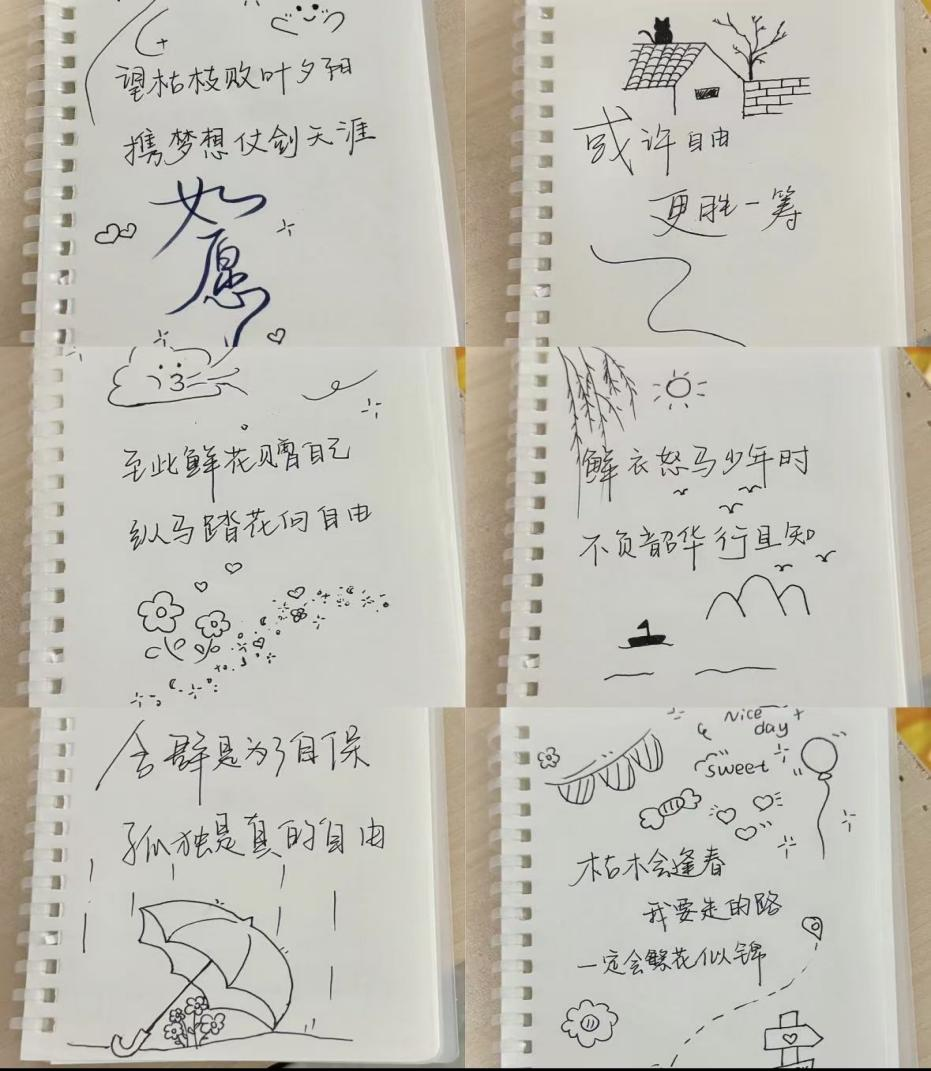 望枯枝败叶夕阳
携梦想仗剑天涯
如
愿
或许自由
更胜一筹
至此鲜花赠自己
纵马踏花向自由
鲜衣怒马少年时
不负韶华行且知
合群是为了自保
孤独是真的自由
Nice
day
sweet
枯木会逢春
我要走的路
一定会繁花似锦